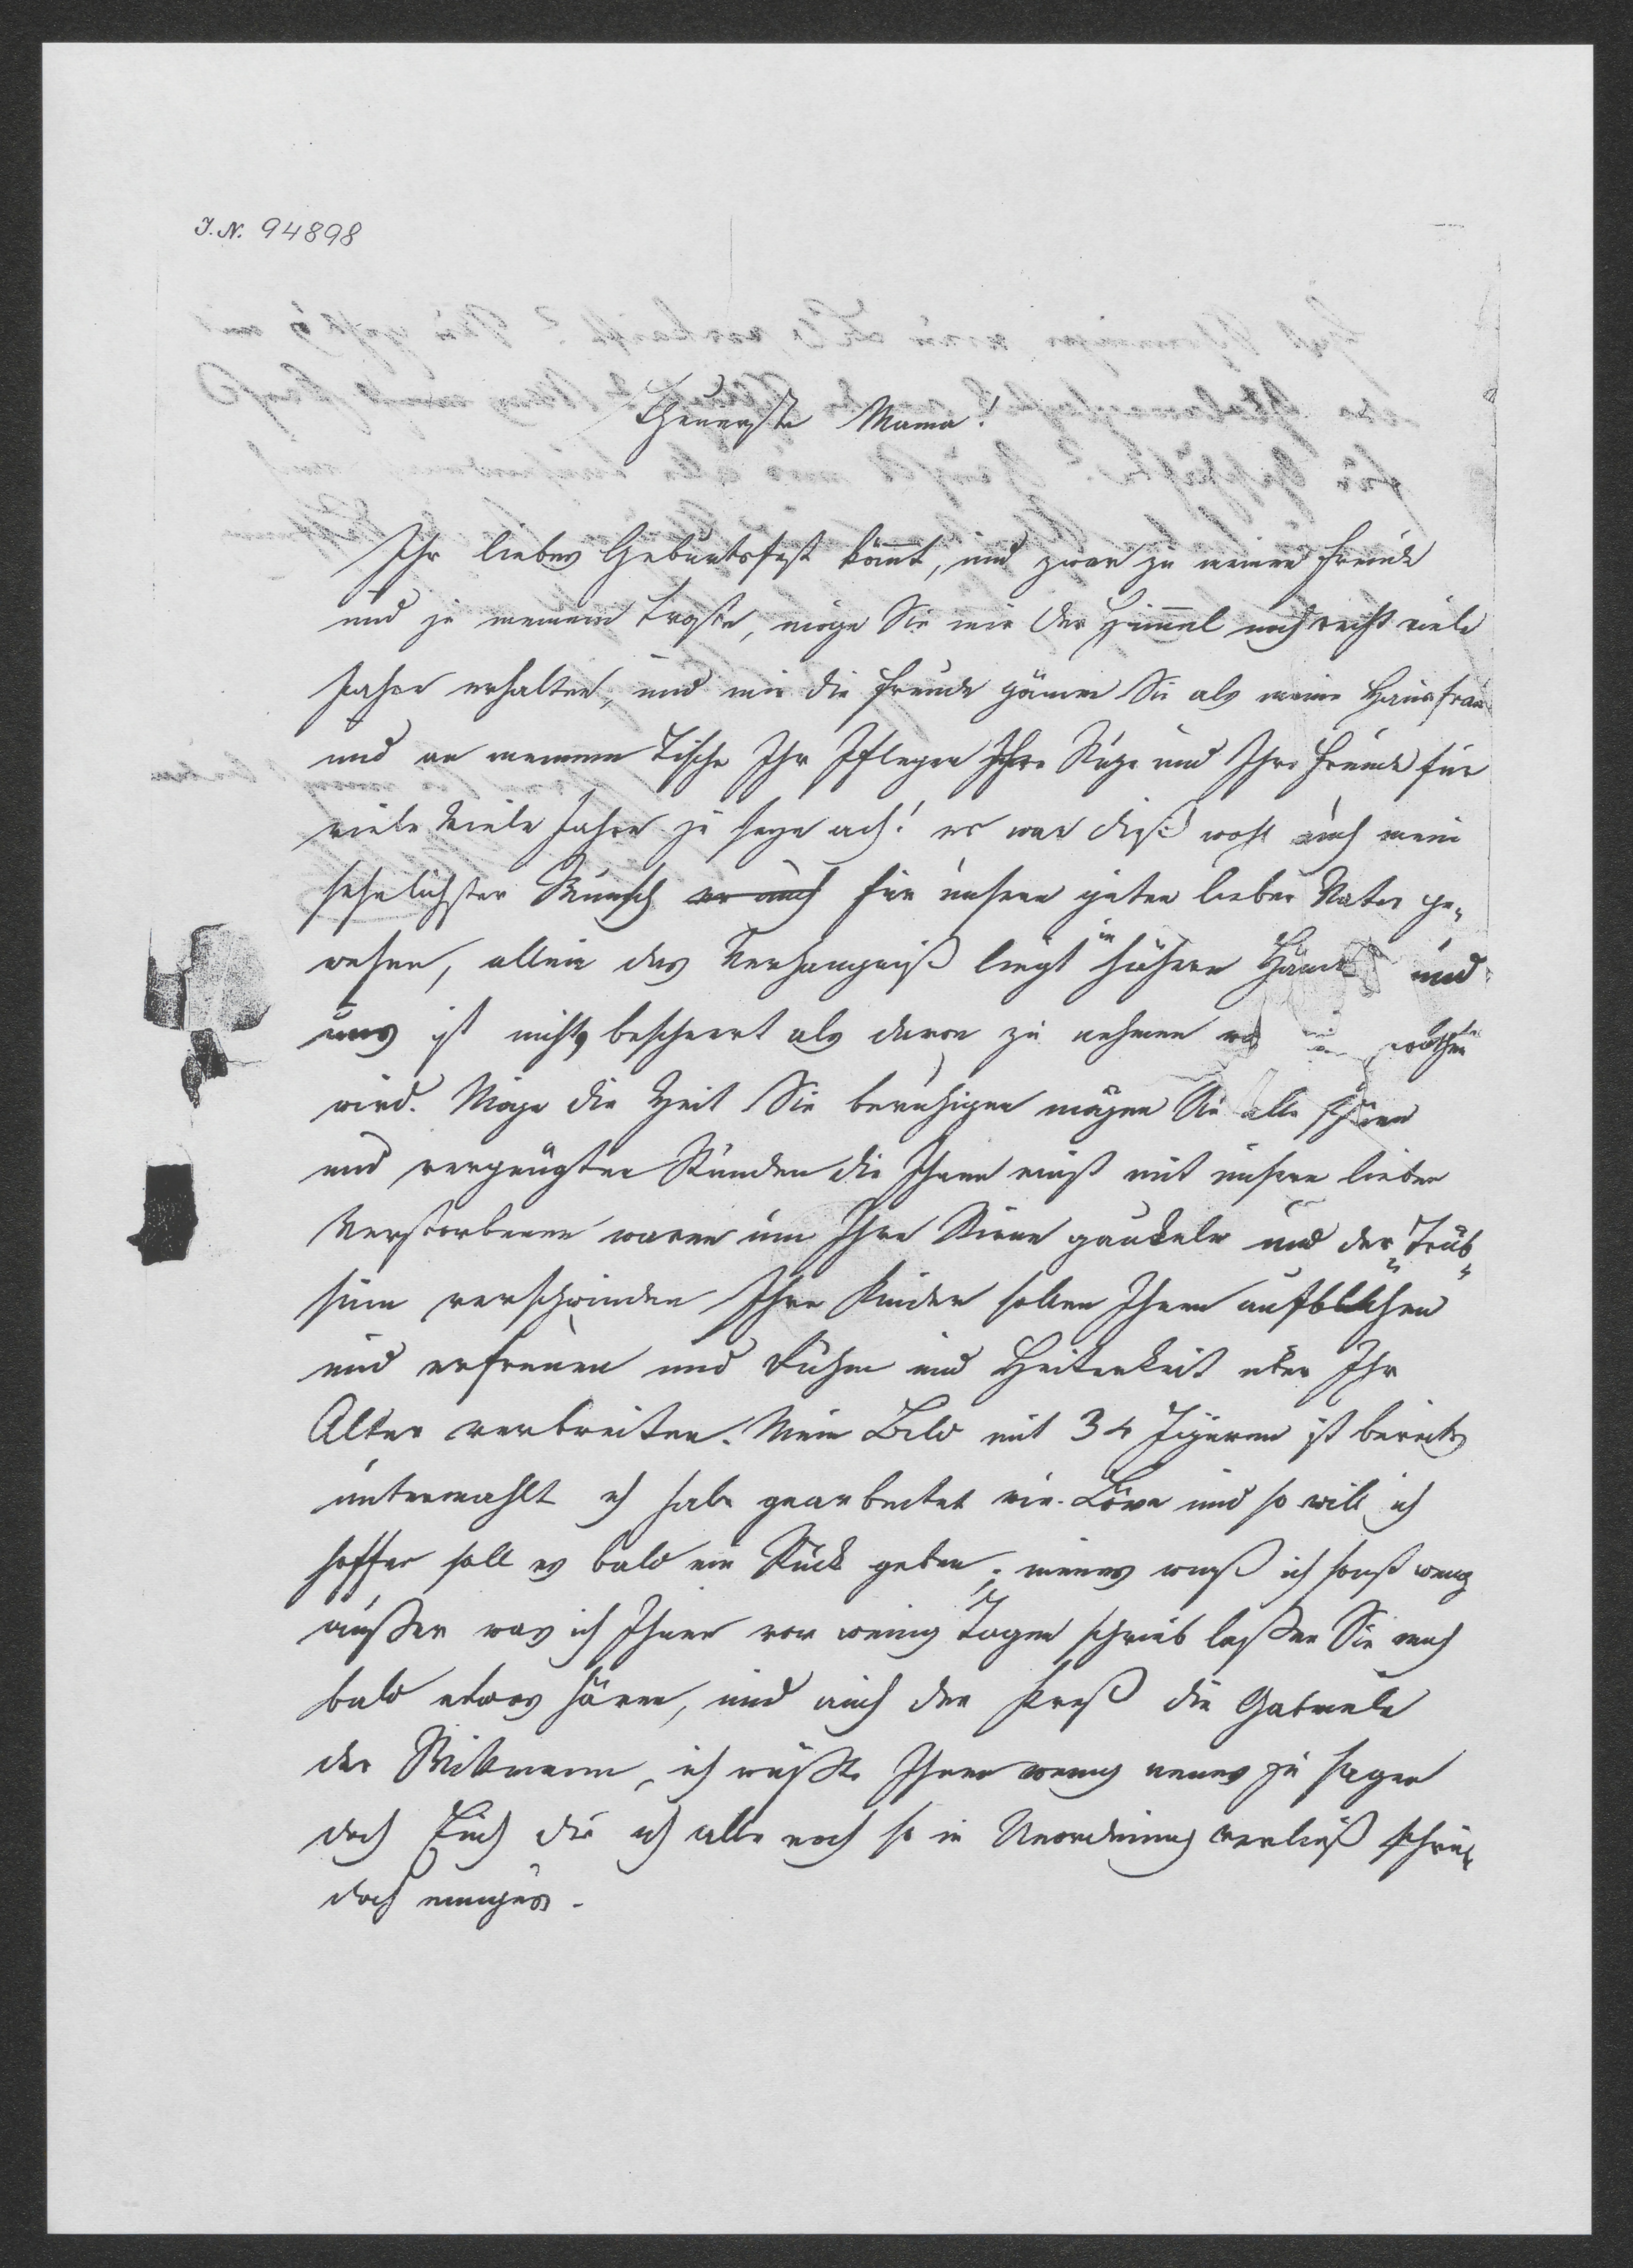 I.N. 94898
Theuerste Mama!
Ihr liebes Geburtsfest kom̅t, und zwar zu meiner Freude
und zu meinem Troste, möge Sie mir der Him̅el noch recht viele
Jahre erhalten, und mir die Freude gönnen Sie als meine Hausfrau
und an meinem Tische Ihr Pfleger Ihre Stüze und Ihre Freude für
viele viele Jahre zu seyn ach! es war dieß wohl auch mein
sehnlichster Wunsch er auch für unseren guten lieben Vater ge-
wesen, allein das Verhängniß liegt in höhern Händ und
uns ist nichts bescheert als davon zu nehmen
wird. Möge die Zeit Sie beruhigen mögen Sie alle schönen
und vergnügten Stunden die Ihnen einst mit unseren lieben
Verstorbenen waren um Ihre Stirne gaukeln und der Trüb-
sinn verschwinden Ihre Kinder sollen Ihnen aufblühen
und erfreuen und Ruhm und Heiterkeit über Ihr
Alter verbreiten. Mein Bild mit 34 Figuren ist bereits
untermahlt ich habe gearbeitet wie Löwe und so will ich
hoffen soll es bald ein Stück geben; neues weiß ich sonst wenig
außer was ich Ihnen vor wenig Tagen schrieb laßen Sie mich
bald etwas hören, und auch der die Gabriele
der, ich wüßte Ihnen wenig neues zu sagen
doch Euch die ich alle noch so in Unordnung verließ
doch manches.